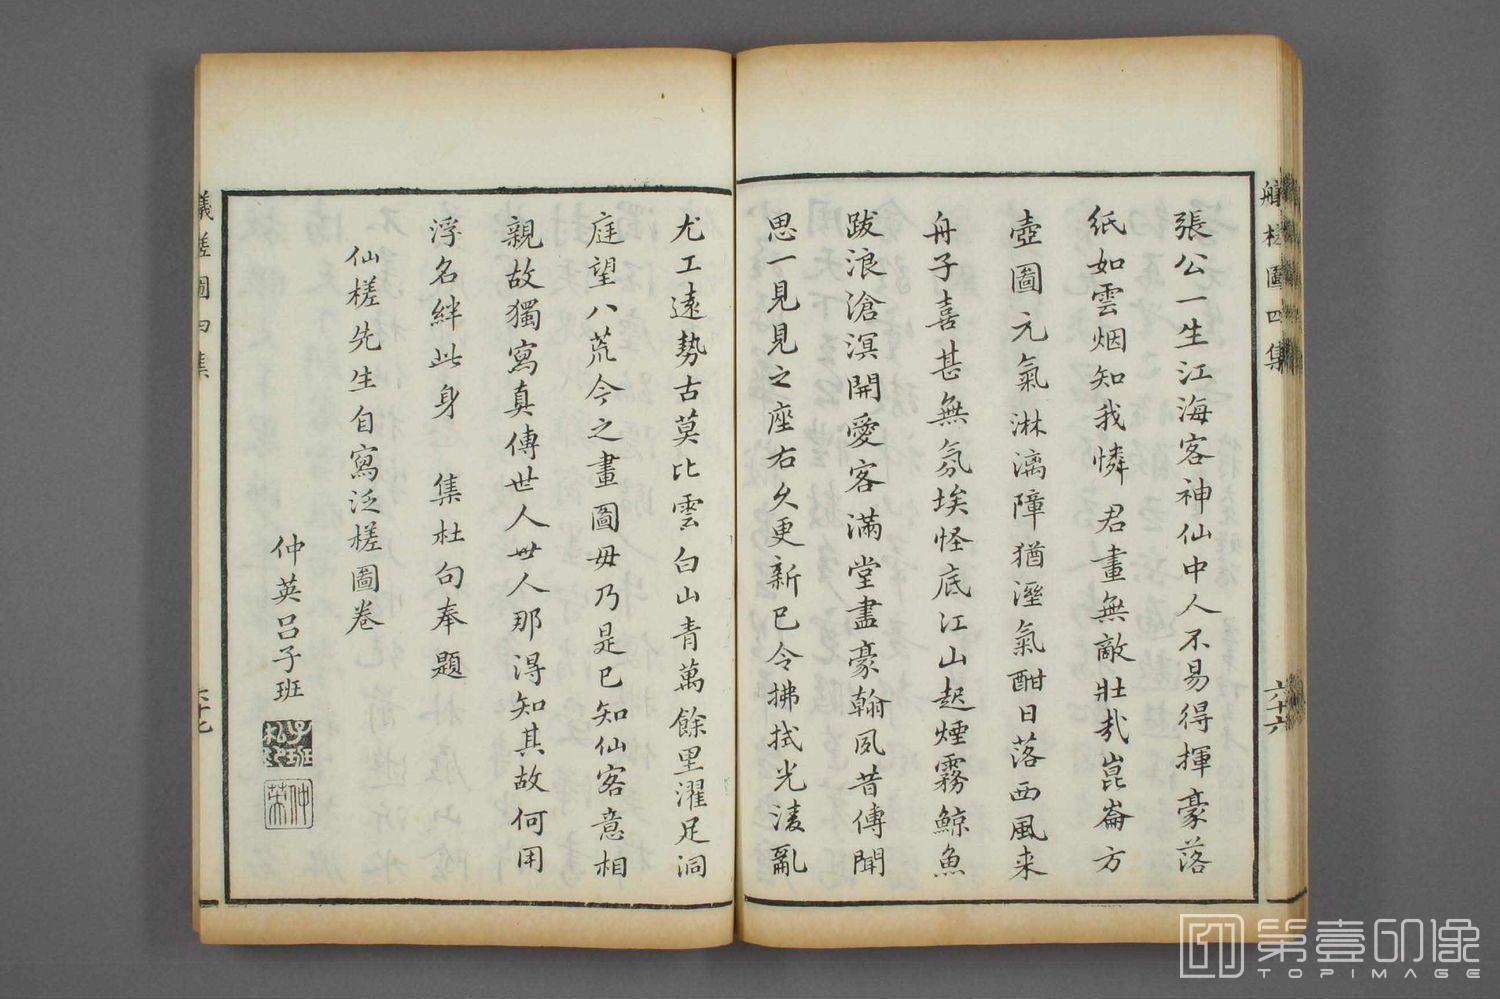 張公一生江海客神仙中人不易得揮豪落
紙如雲烟知我憐君畫無敵壯哉崑崙方
壺圖元氣淋漓障猶溼氣酣日落西風来
舟子喜甚無氛埃怪底江山起煙霧鯨魚
跋浪滄溟開愛客滿堂盡豪翰夙昔傳聞
思一見見之座右久更新已令拂拭光淩亂
尤工遠勢古莫比雲白山青萬餘里濯足洞
庭望八荒今之畫圖毋乃是已知仙客意相
親故獨寫真傳世人世人那得知其故何用
浮名絆此身 集杜句奉題
仙槎先生自寫泛槎圖卷
仲英吕子班
子班
仲英
槎圖四集
六十六
槎圖四集
六十七
第壹印像
TOPIMAGE